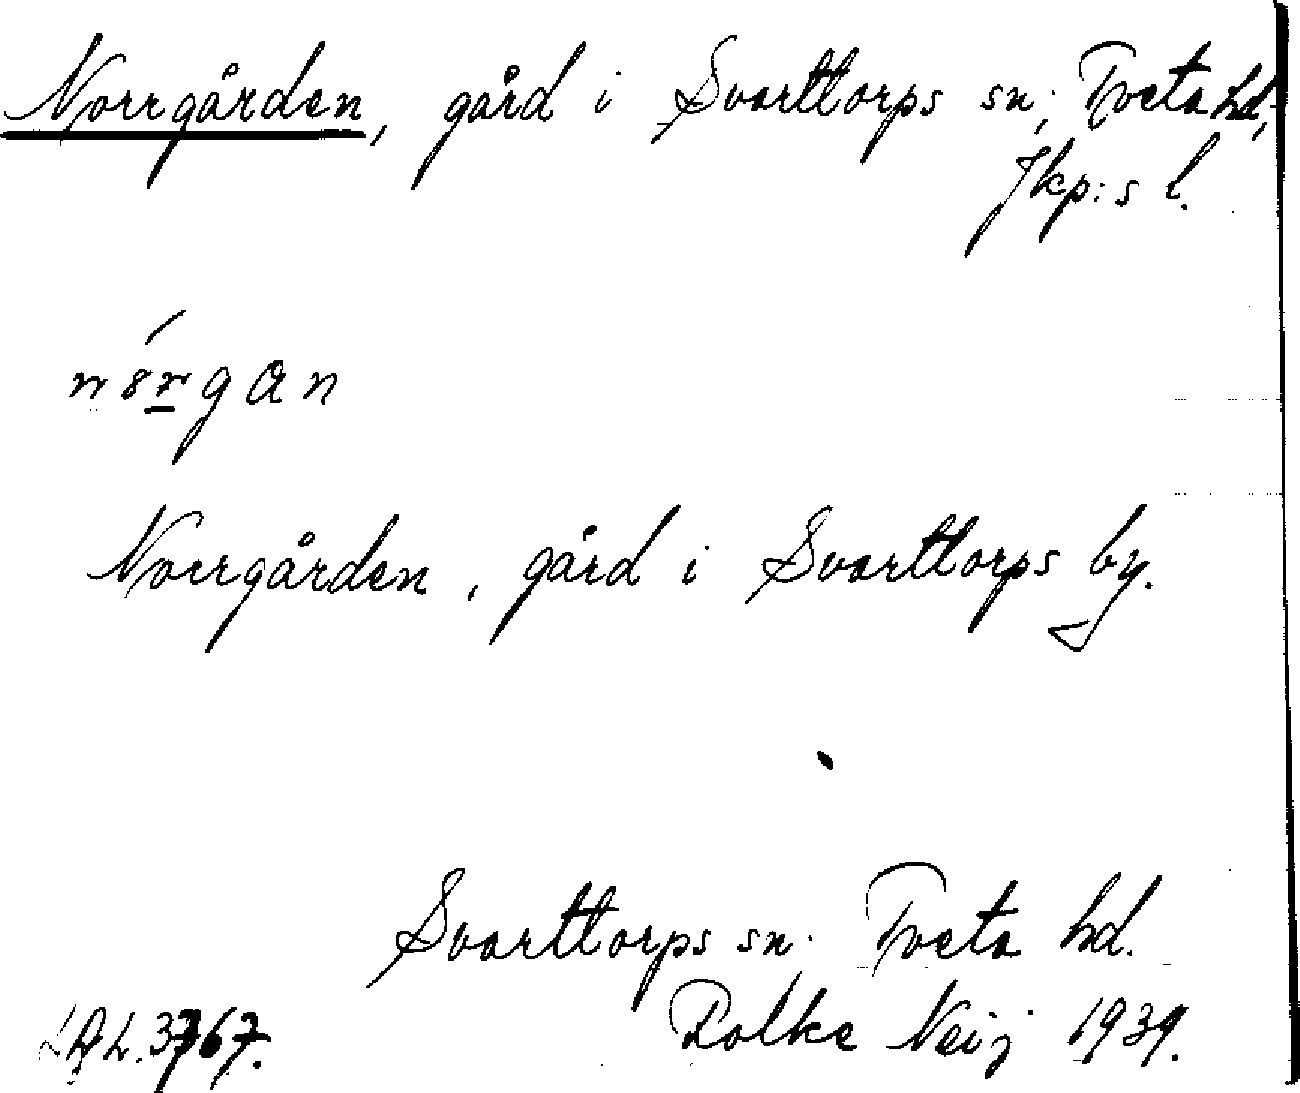 Norrgården, gård i Svarttorps sn, Tveta hd,
Jkp:s l.
Norrgården, gård i Svarttorps by.
Svarttorps sn. Tveta hd.
Folke Neij 1939.
3767.